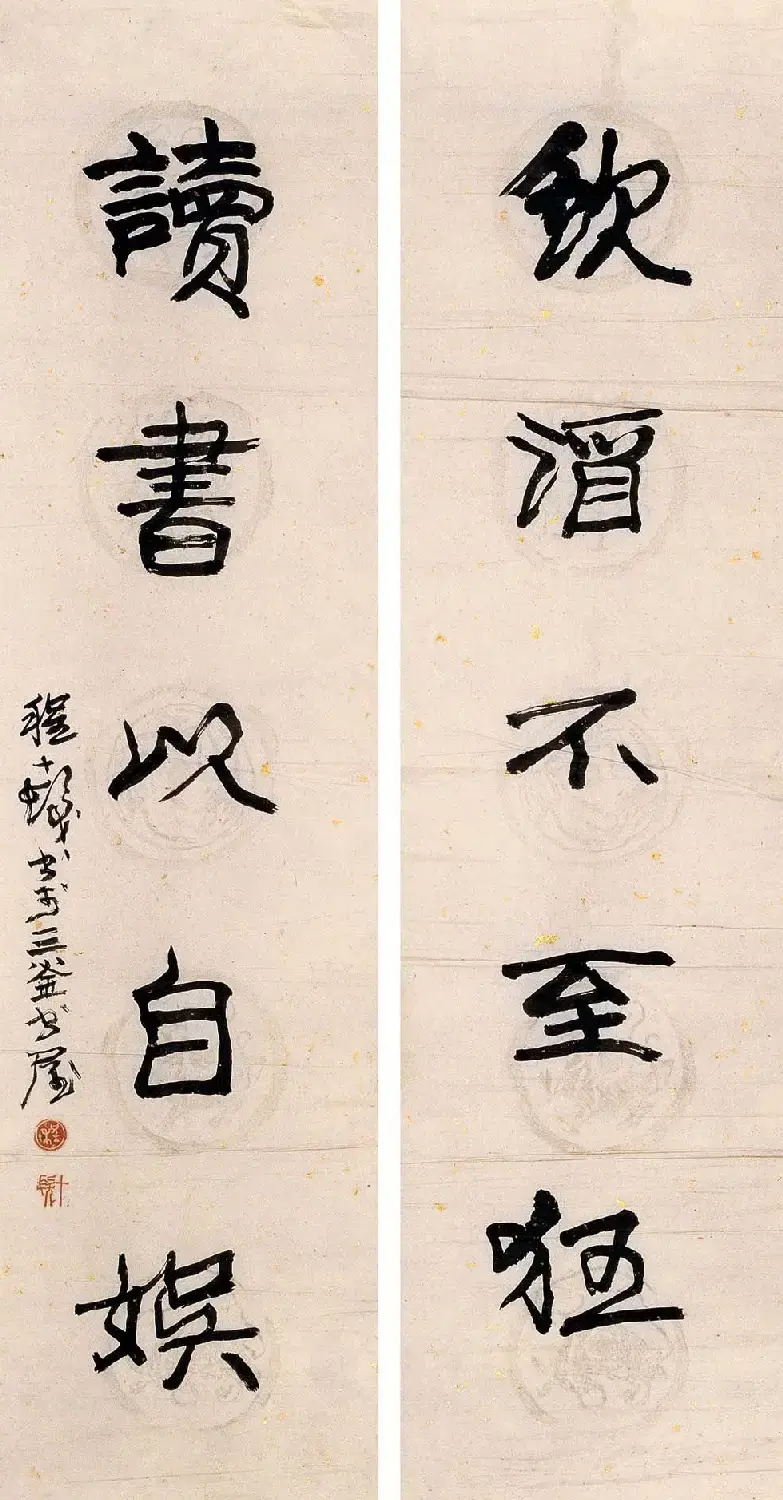 飲酒不至狂
讀書以自娛
程十髮書於三釜書屋
程
十髮